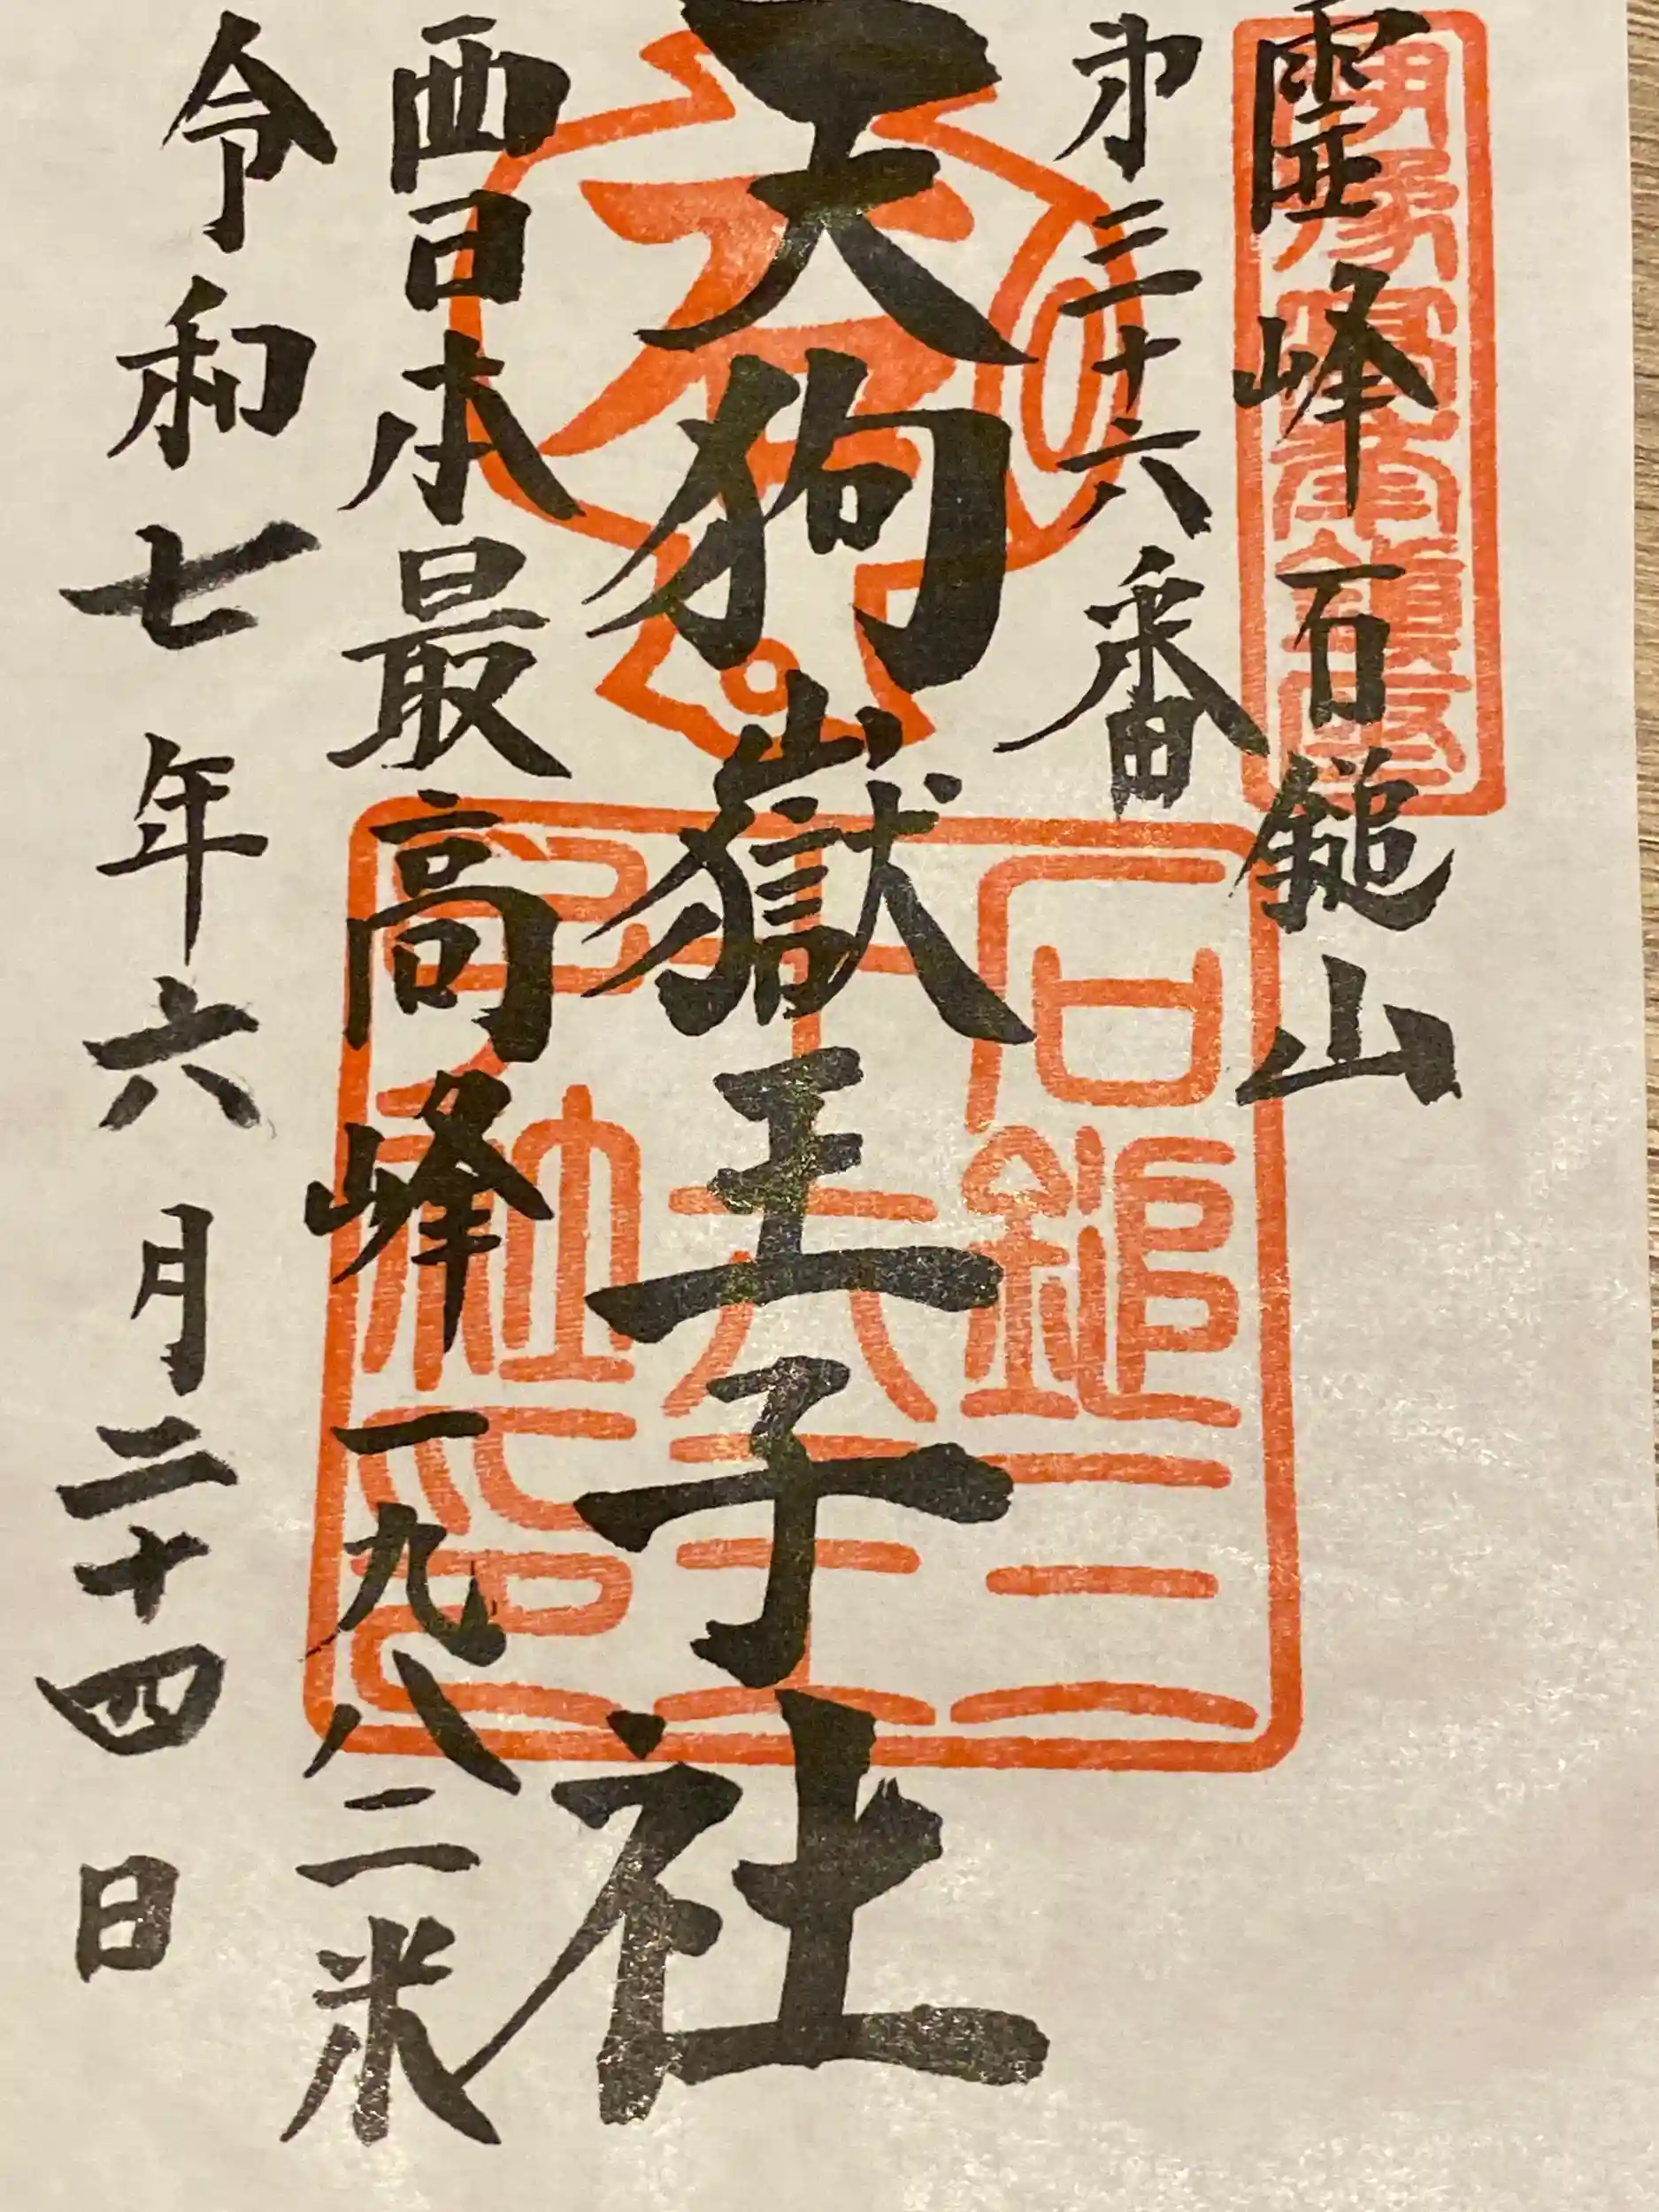 霊峰石鎚山
第三十六番
天狗嶽王子社
西日本最高峰一九八二米
令和七年六月二十四日
石鎚三
十六王
子社印